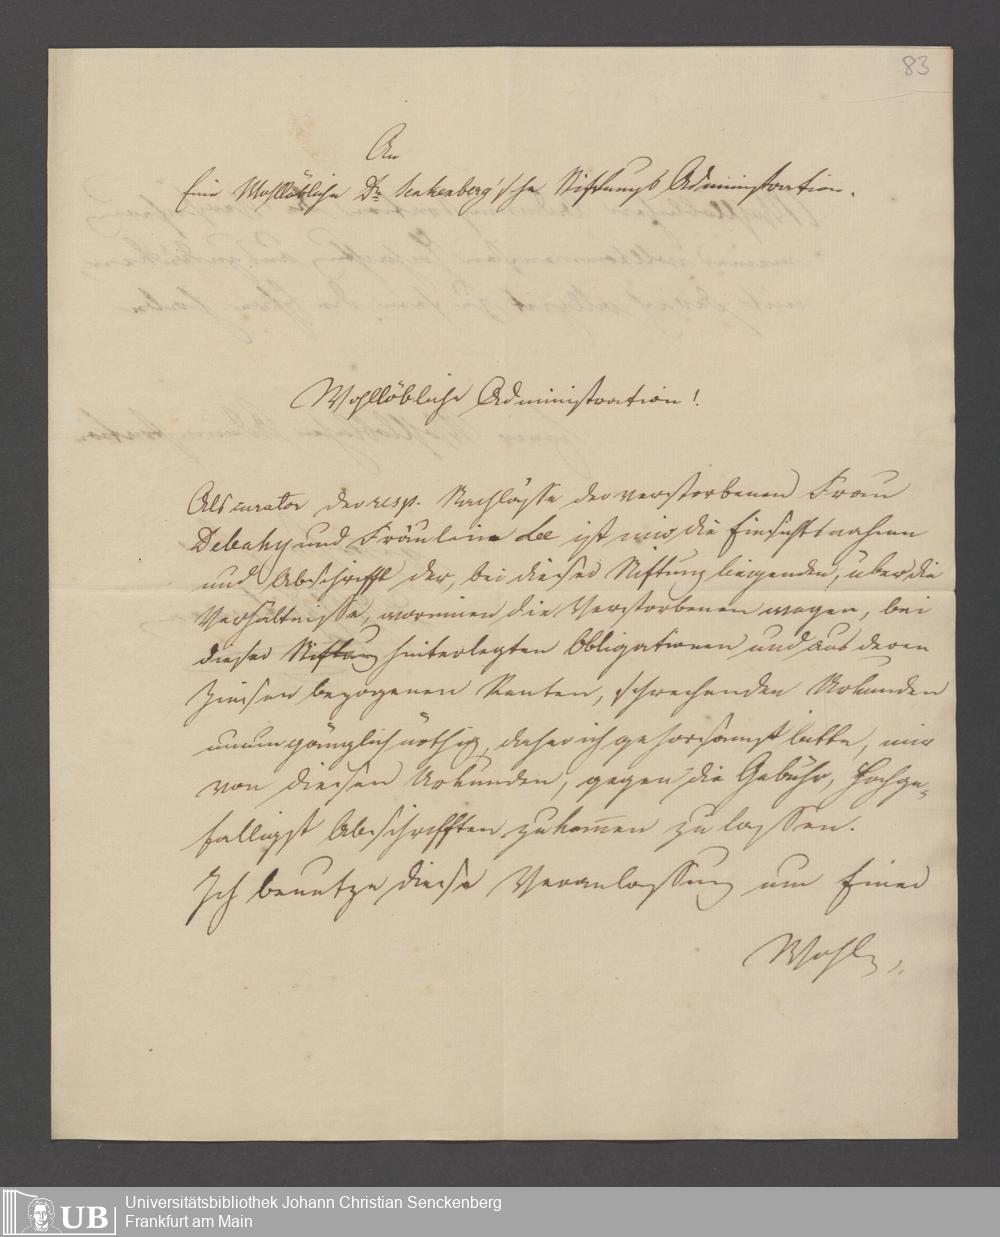 83
An
Eine Wohllöbliche Dr. Senkenberg'sche Stiftungs Administration.
Wohllöbliche Administration!
Als curator der resp. Nachlässe der verstorbenen Frau
Debahy und Fräulein Lee ist mir die Einsichtnahme
und Abschrifft der, bei dieser Stiftung liegenden, über die
Verhältnisse, worinnen die Verstorbenen wegen, bei
dieser Stiftung hinterlegten Obligationen und aus deren
Zinsen bezogenen Renten, sprechenden Urkunden
unumgänglich nöthig, daher ich gehorsamst bitte, mir
von diesen Urkunden, gegen die Gebühr, hochge-
fälligst Abschrifften zukommen zu lassen.
Ich benutze diese Veranlassung um Einer
Wohl
UB
Universitätsbibliothek Johann Christian Senckenberg
Frankfurt am Main